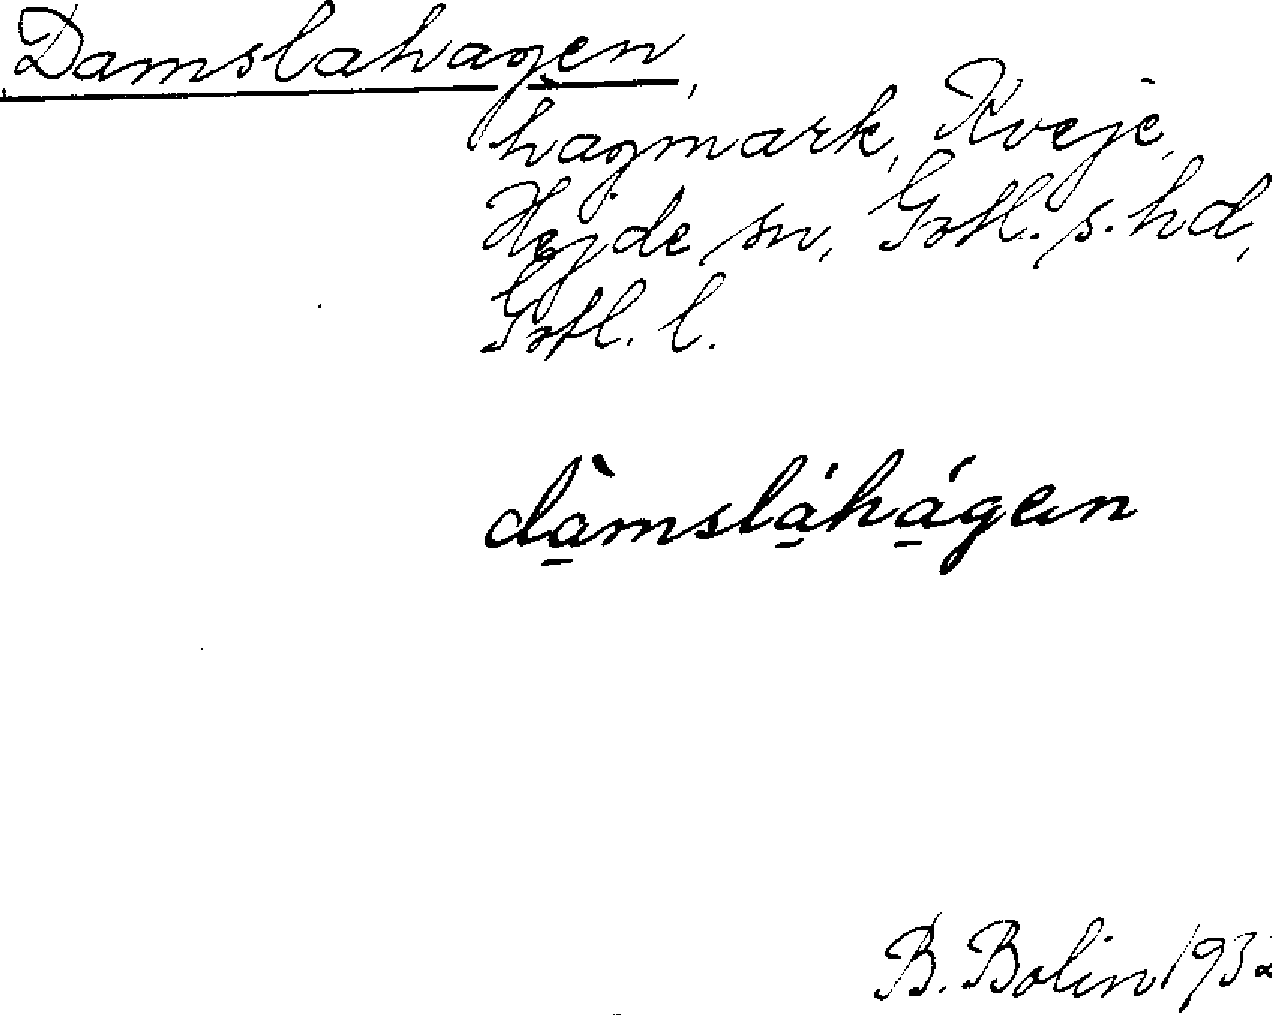 Damslahagen,
hagmark, Kveje,
Hejde sn, Gotl. s. hd,
Gotl. l.
dàmsla̍há́gen
B. Bolin 1932